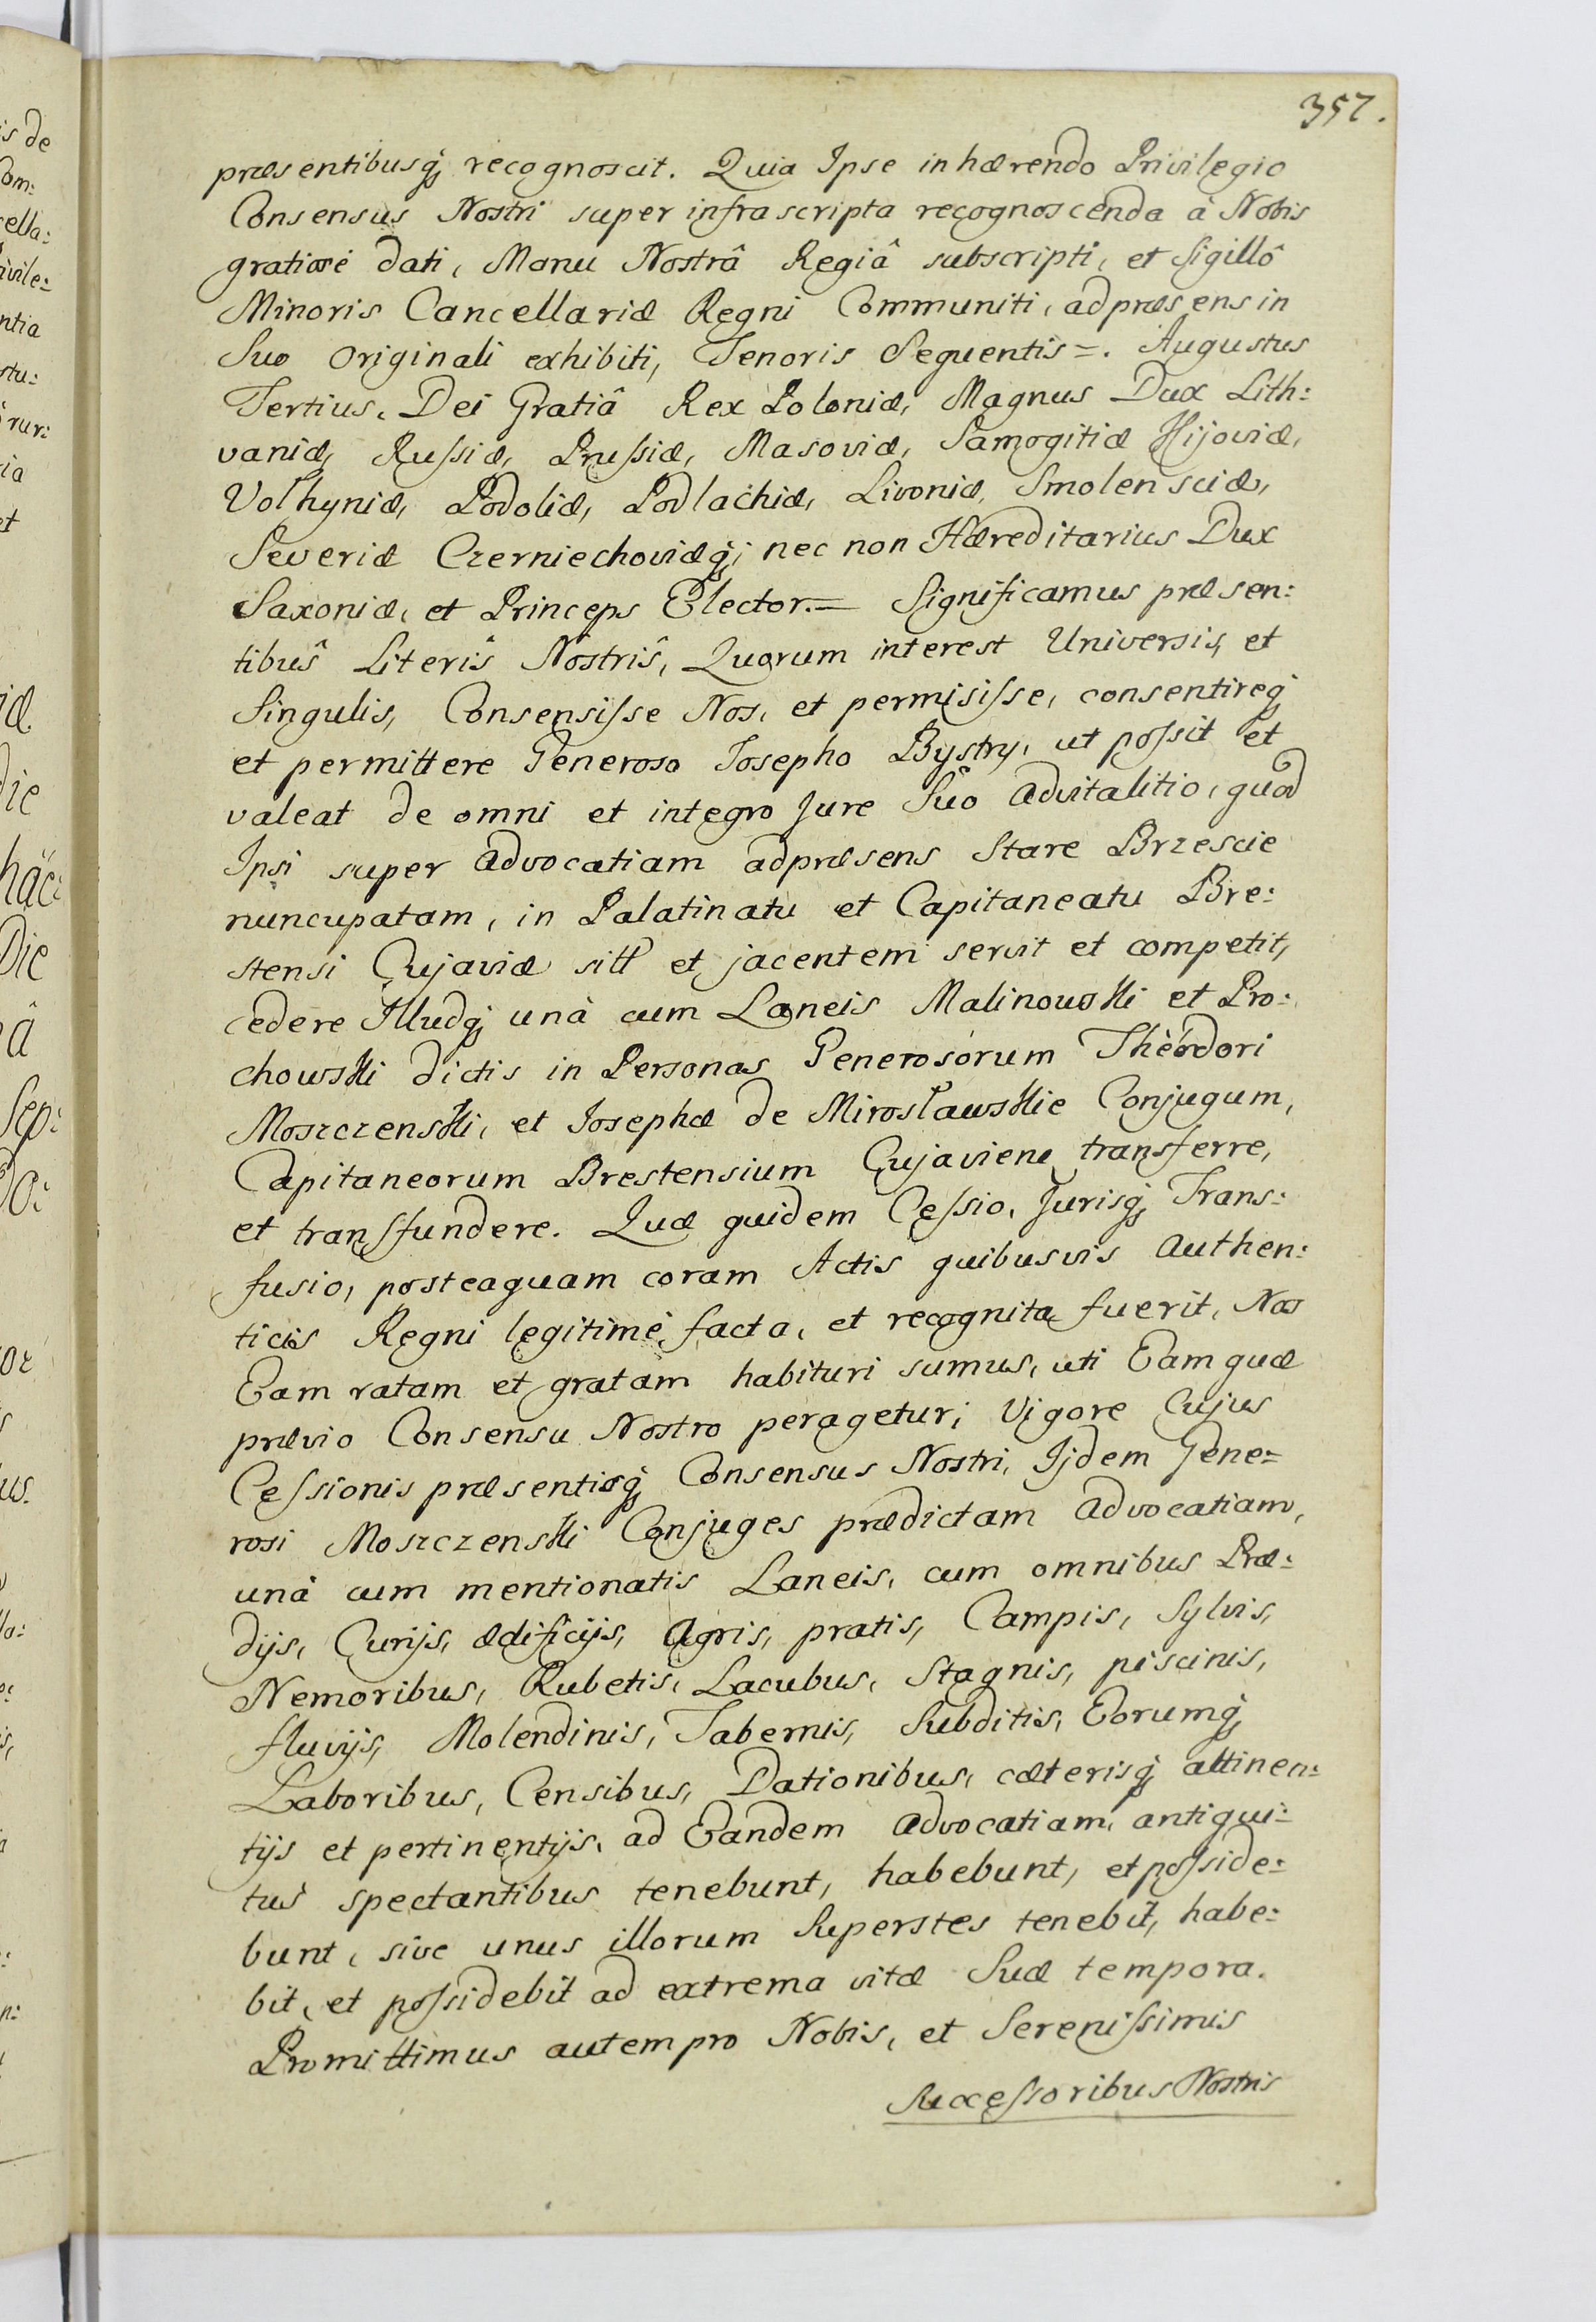 357.
præsentibusq́ recognoscit. Quia Ipse inhærendo Privilegio
Consensus Nostri super infrascripta recognoscenda à Nobis
gratiosè dati, Manu Nostrâ Regiâ subscripti, et Sigillô
Minoris Cancellariæ Regni Communiti, ad præsens in
Suo Originali exhibiti, Tenoris Sequentis =. Augustus
Tertius, Dei Gratiâ Rex Poloniæ, Magnus Dux Lith:
vaniæ, Rußiæ, Prußiæ, Masoviæ, Samogitiæ Kijoviæ,
Volhyniæ, Podoliæ, Podlachiæ, Livoniæ, Smolensciæ,
Severiæ Czerniechoviæq́; nec non Hæreditarius Dux
Saxoniæ, et Princeps Elector.= Significamus præsen:
tibus̑ Literis̑ Nostris̑, Quorum interest Universis, et
Singulis, Consensiſse Nos, et permisiſse, consentireq́
et permittere Generoso Josepho Bystry, ut poſsit et
valeat de omni et integro Jure Suo advitalitio, quod
Ipsi super advocatiam ad præsens Stare Brzescie
nuncupatam, in Palatinatu et Capitaneatu Bre:
stensi Cujaviæ sitt et jacentem servit et competit,
cedere Illudq́ unà cum Laneis Malinowski et Pro:
chowski dictis in Personas Generosorum Theodori
Moszczenski, et Josephæ de Mirosławskie Conjugum,
Capitaneorum Brestensium Cujaviene transferre,
et transfundere. Quæ quidem Ceſsio, Jurisq́ Trans:
fusio, posteaquam coram Actis quibusvis authen:
ticis Regni legitimè facta, et recognita fuerit, Nos
Eam ratam et gratam habituri sumus, uti Eam quæ
prævio Consensu Nostro perageturi Vigore Cujus
Ceſsionis præsentisq́ Consensus Nostri, Ijdem Gene=
rosi Moszczenski Conjuges prædictam advocatiam,
unà cum mentionatis Laneis, cum omnibus Præ:
dijs, Curijs, ædificijs, agris, pratis, Campis, Sylvis,
Nemoribus, Rubetis, Lacubus, Stagnis, piscinis,
fluvijs, Molendinis, Tabernis, Subditis, Eorumq́
Laboribus, Censibus, Dationibus, cæterisq́ attinen:
tijs et pertinentijs, ad Eandem advocatiam, antiqui:
tus spectantibus tenebunt, habebunt, et poſside:
bunt, sive unus illorum Superstes tenebit, habe:
bit, et poſsidebit ad extrema vitæ Suæ tempora.
Promittimus autem pro Nobis, et Sereniſsimis
Succeſsoribus Nostris